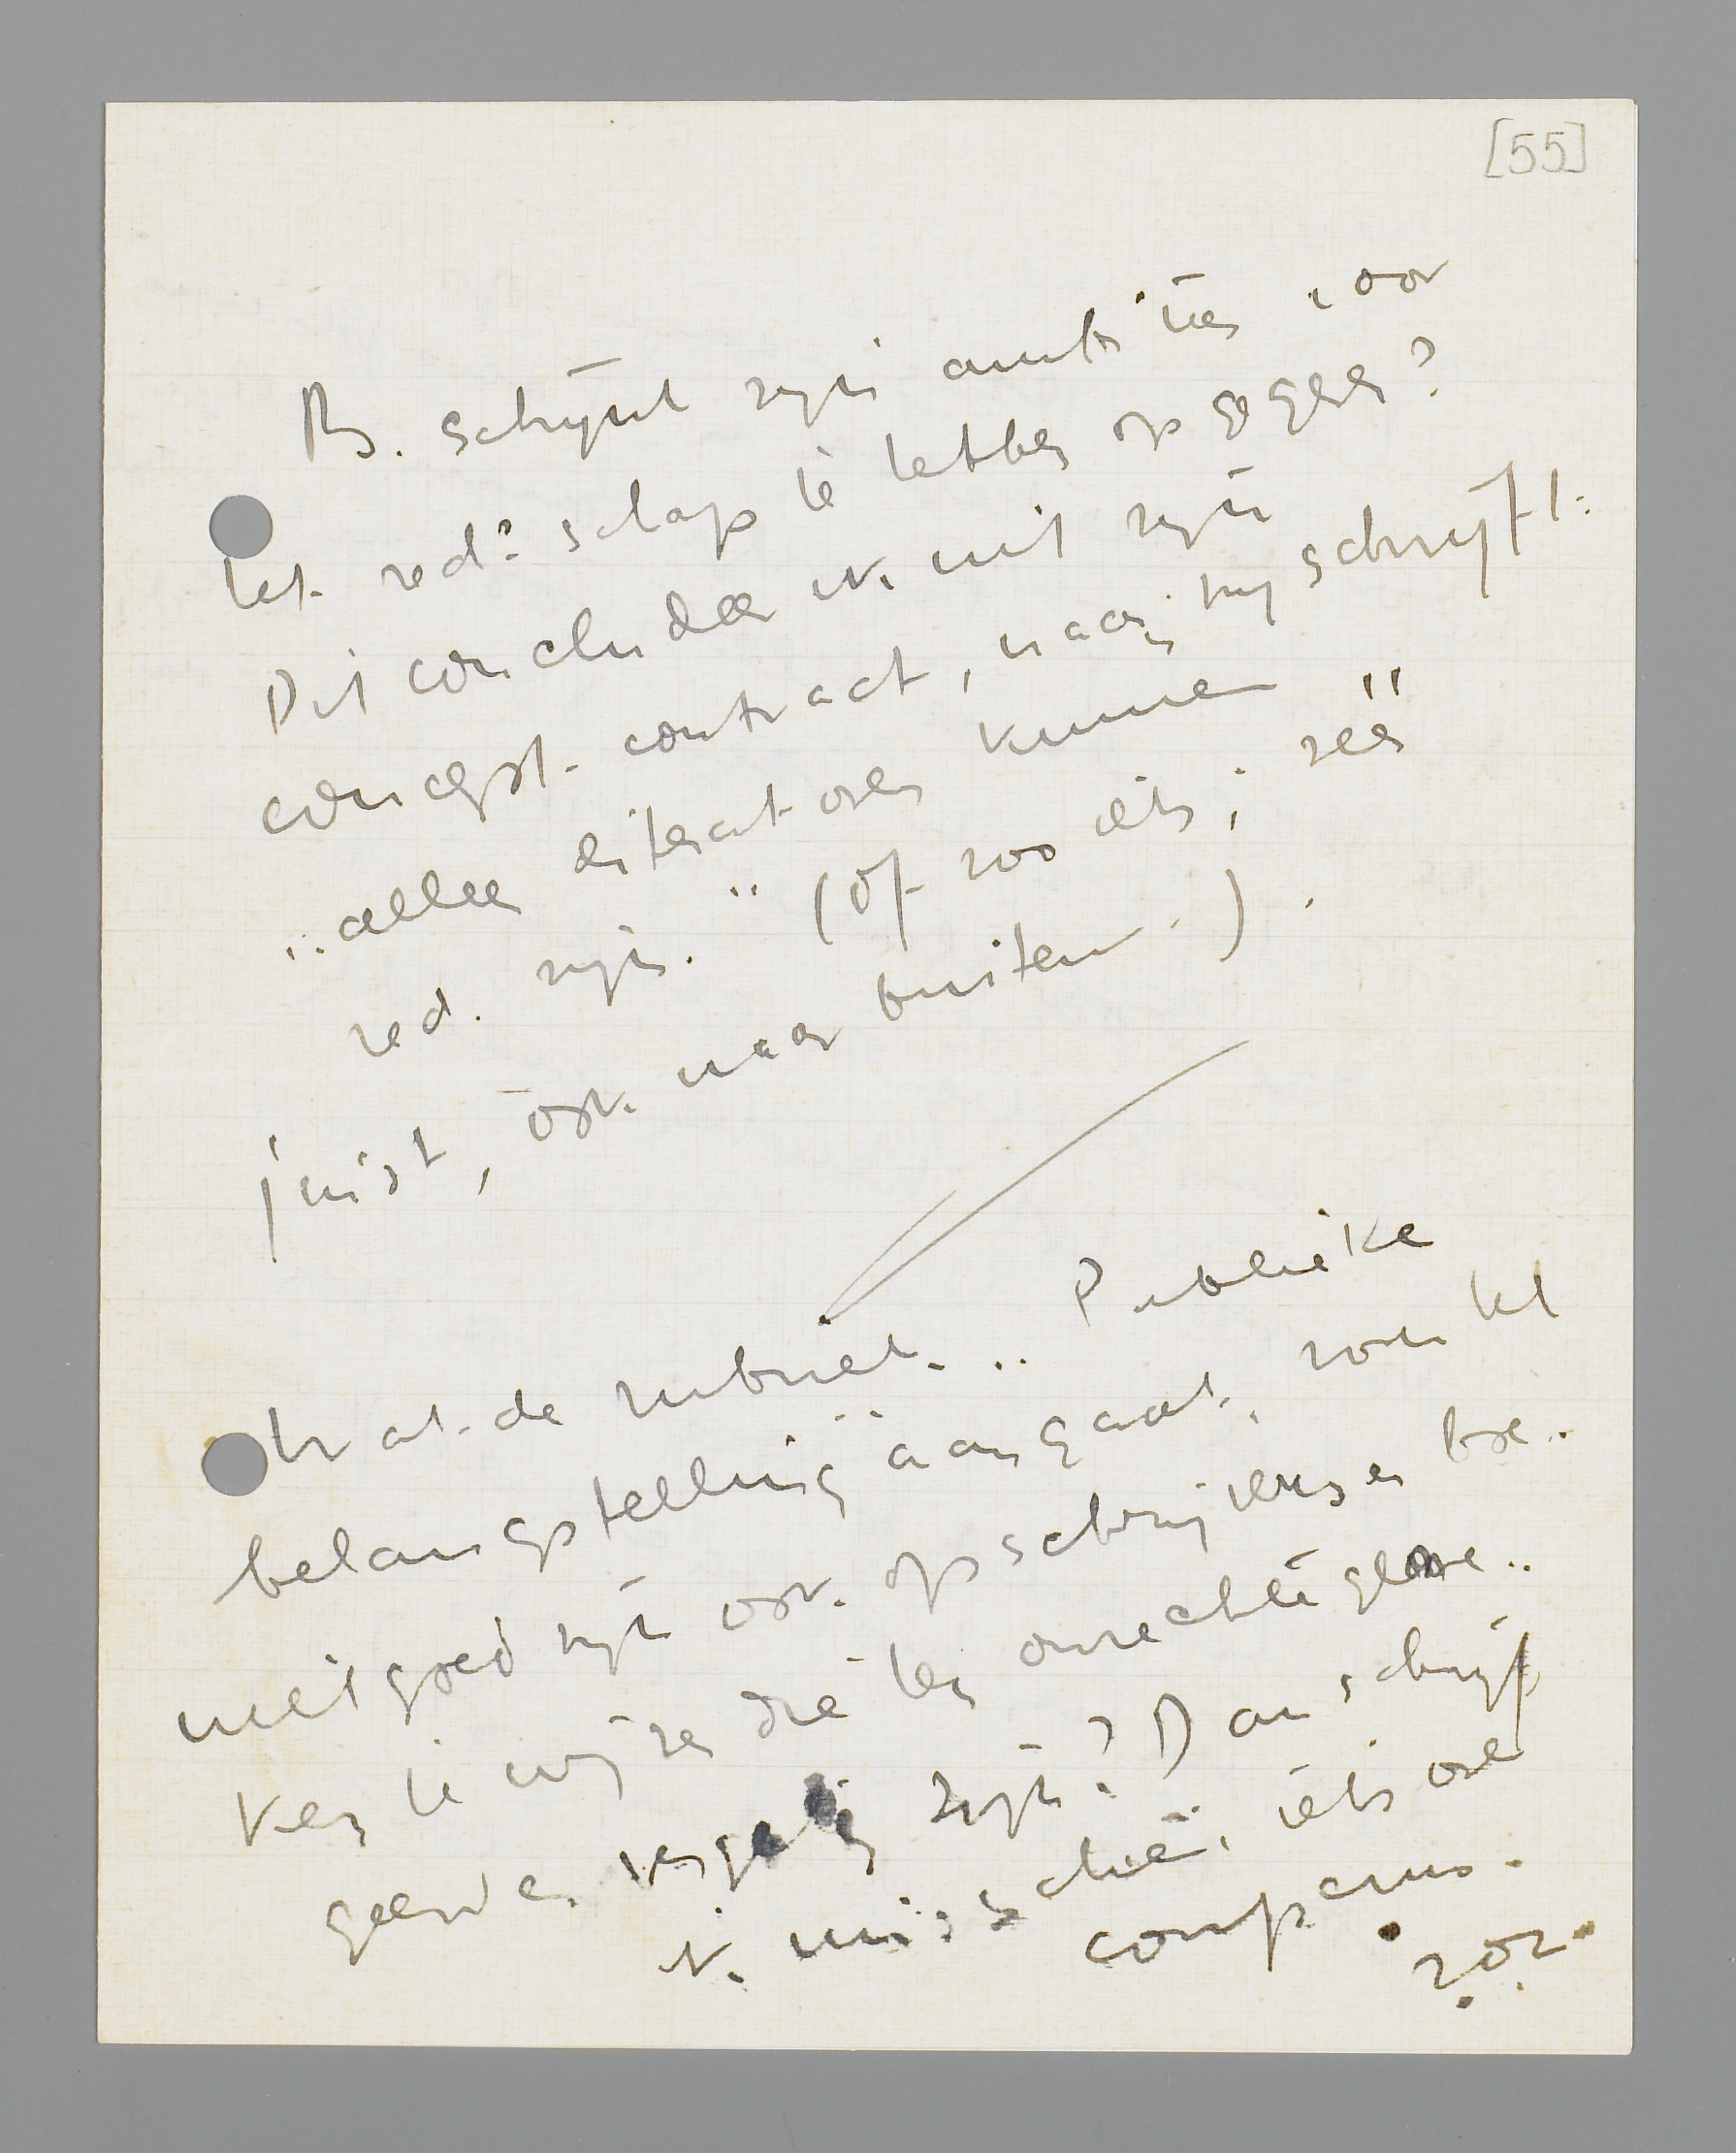 [55]
B. schijnt zijn ambities voor
het red. schap te hebben opgegeven?
Dit concludeer ik uit zijn
concept-contract, waarin hij schrijft:
"alleen literatoren kunnen
red. zijn." (Of zoo iets; zeer
juist, ook naar buiten.).
Wat de rubriek "Publieke
belangstelling" aangaat, zou het
niet goed zijn ook op schrijvers en boe-
ken te wijzen die ten onrechte genegeerd
en vergeten zijn? Dan schrijf
ik misschien iets over
Comperus.
z.o.z.